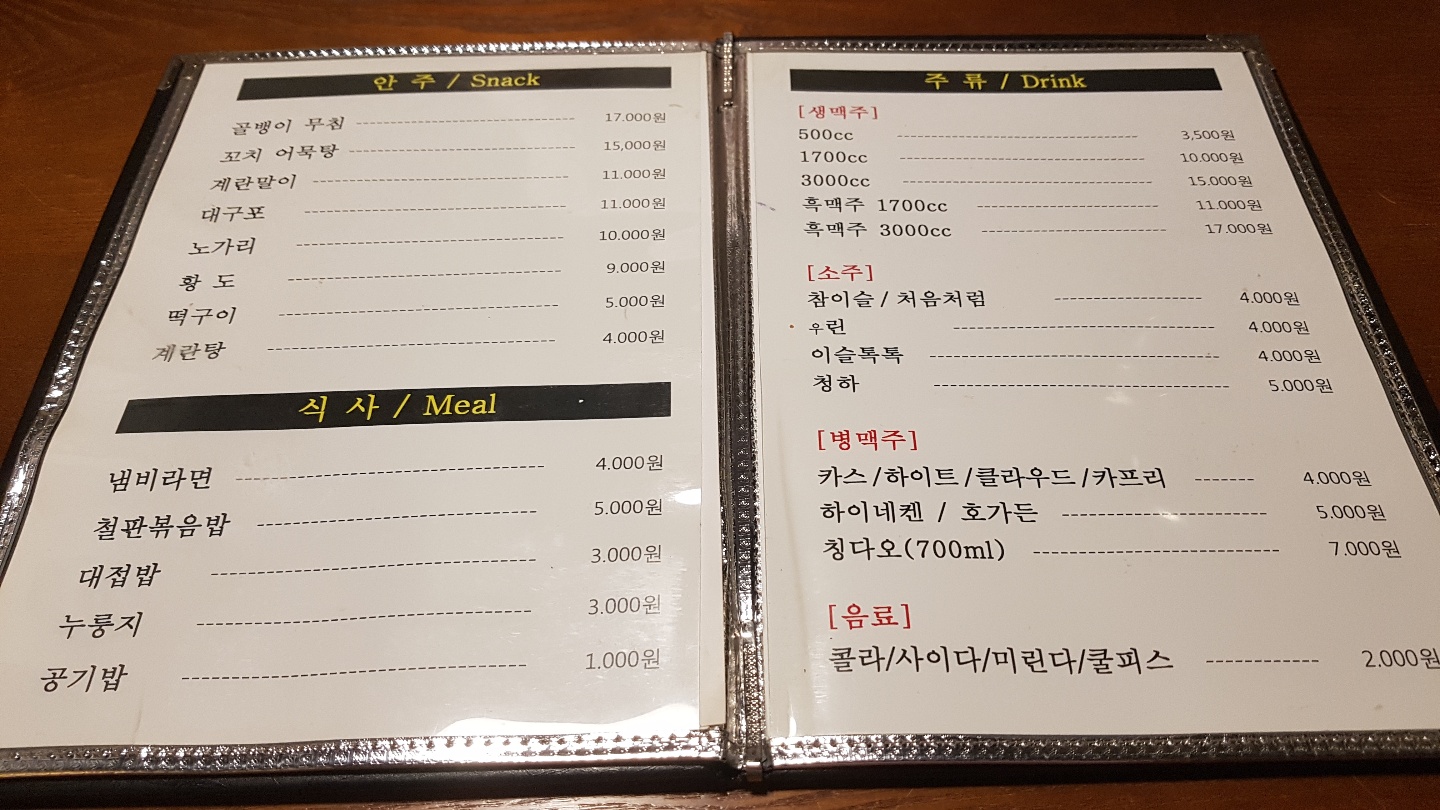 안 주 / Snack
골뱅이 무침 17.000원
꼬치 어묵탕 15,000원
계란말이 11.000원
대구포 11.000원
노가리 10.000원
황 도 9.000원
떡구이 5.000원
계란탕 4.000원
식 사 / Meal
냄비라면 4.000원
철판볶음밥 5.000원
대접밥 3.000원
누룽지 3.000원
공기밥 1.000원
주 류 / Drink
[생맥주]
500cc 3,500원
1700cc 10.000원
3000cc 15.000원
흑맥주 1700cc 11.000원
흑맥주 3000cc 17.000원
[소주]
참이슬 / 처음처럼 4.000원
우린 4.000원
이슬톡톡 4.000원
청하 5.000원
[병맥주]
카스/하이트/클라우드/카프리 4.000원
하이네켄 / 호가든 5.000원
칭다오(700ml) 7.000원
[음료]
콜라/사이다/미린다/쿨피스 2.000원